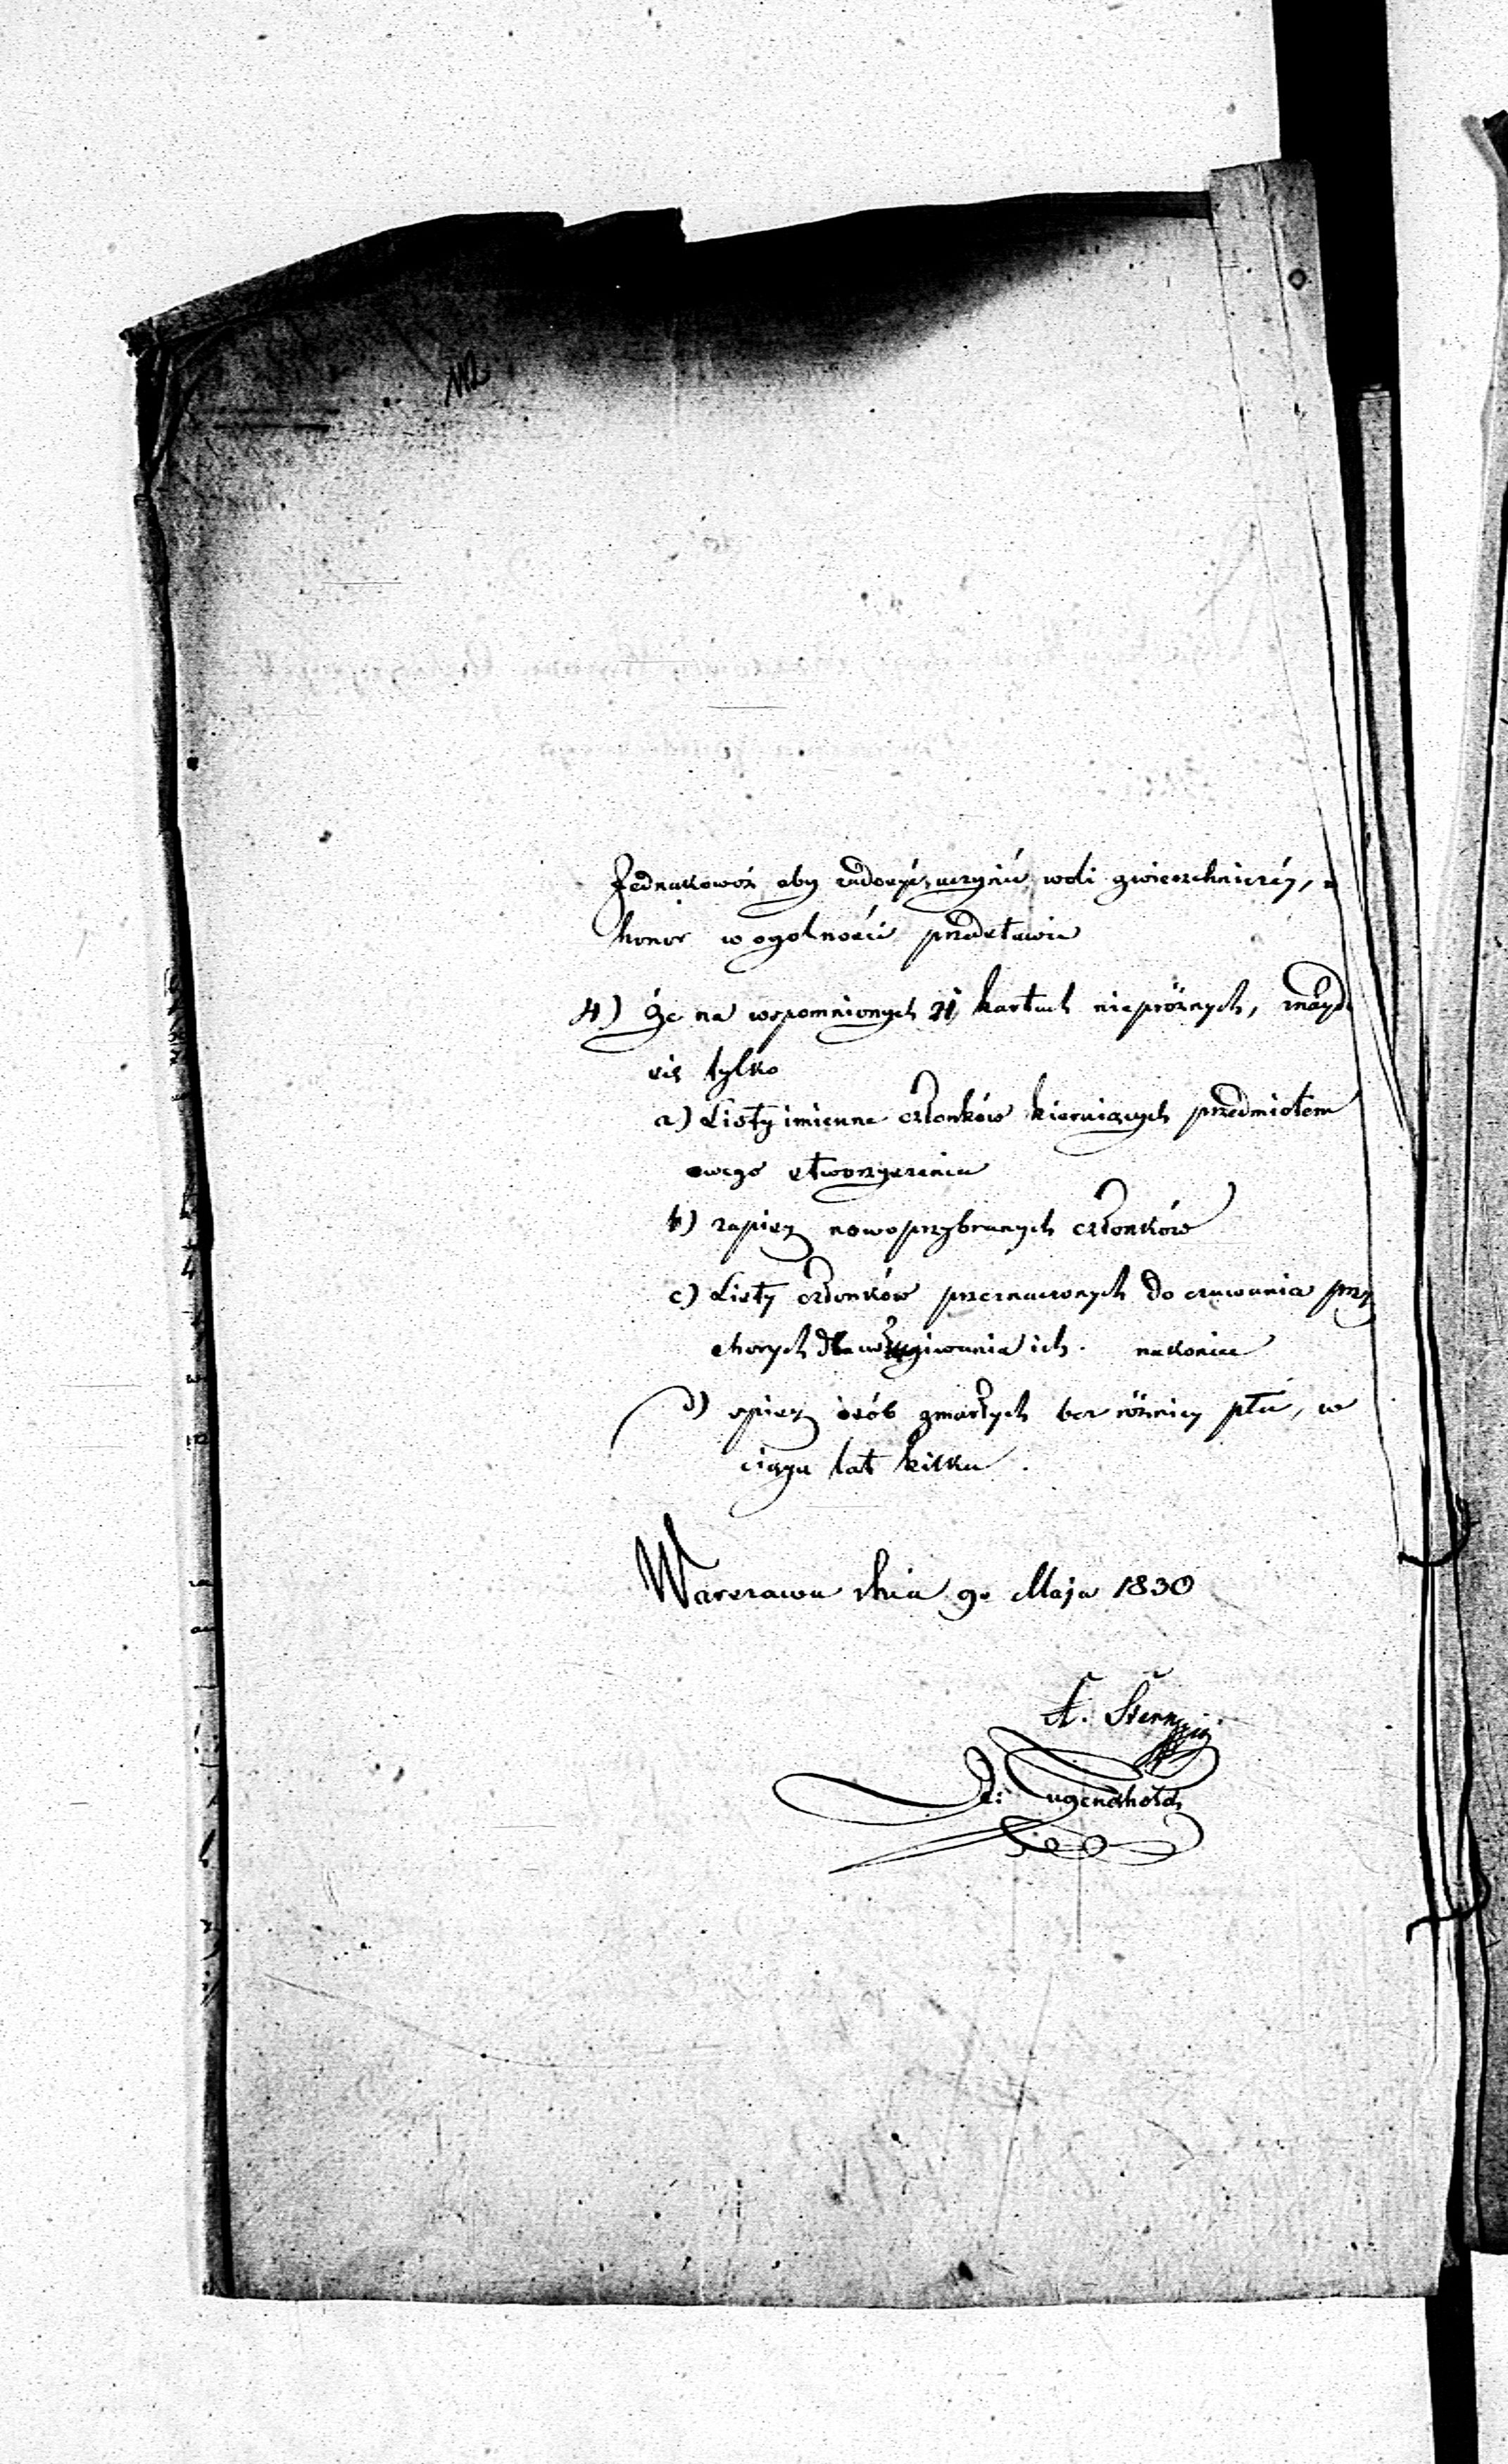 112
Jednakowoż aby zadosyć uczynić woli zwierzchniczéy,
honor w ogolności przedstawić
4) Że na wspomnionych 21 kartach niepróżnych, znayd
się tylko
a) Listy imienne członków kieruiących przedmiotem
owego stworzyszenia
b) zapisy nowo przybranych członków
c) Listy członków przeznaczonych do czuwania przy
chorych dla usługiwania ich. nakoniec
d) spisy osób zmarłych bez różnicy płci, w
ciągu lat kilku.
Warszawa dnia 9o Maja 1830
A. Stern
Jugendhold